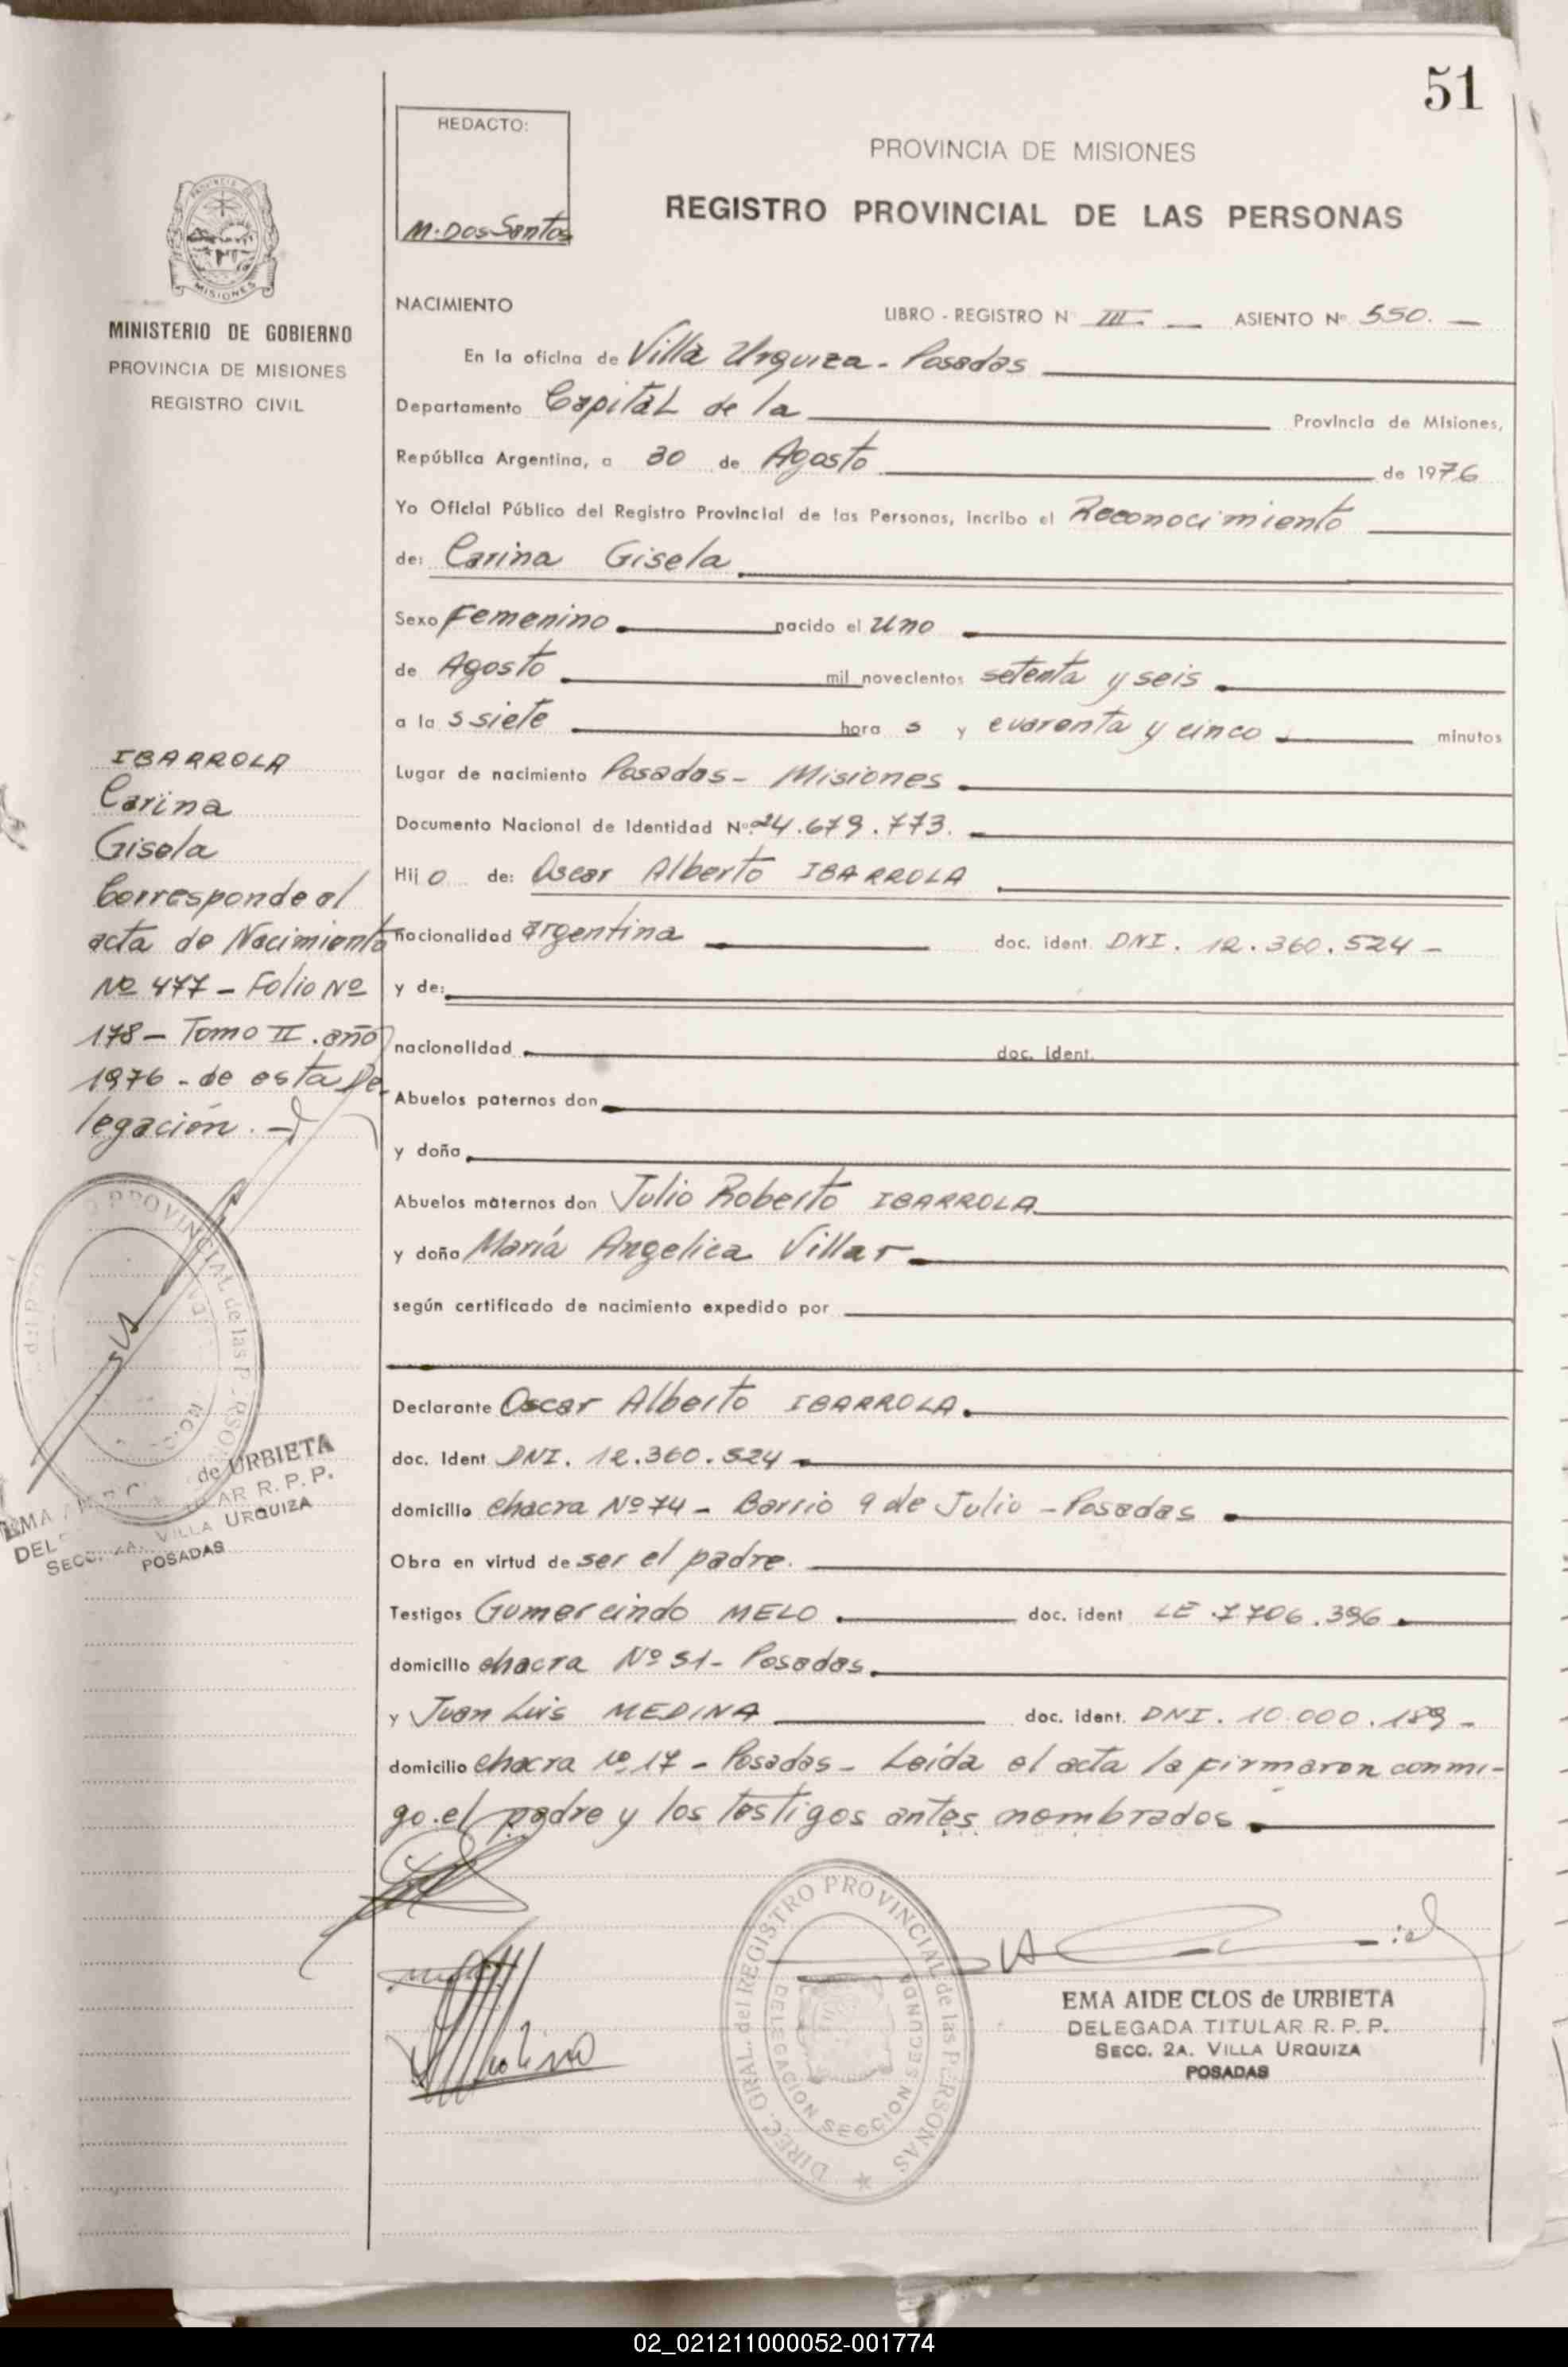 51
REDACTO:
M. Dos Santos
PROVINCIA DE MISIONES
REGISTRO PROVINCIAL DE LAS PERSONAS
MISIONES
MINISTERIO DE GOBIERNO
PROVINCIA DE MISIONES
REGISTRO CIVIL
NACIMIENTO LIBRO - REGISTRO Nº III. ASIENTO Nº 550.
En la oficina de Villa Urquiza - Posadas
Departamento Capital de la Provincia de Misiones,
República Argentina, a 30 de Agosto de 1976
Yo Oficial Público del Registro Provincial de las Personas, incribo el Reconocimiento
de: Carina Gisela
Sexo Femenino nacido el Uno
de Agosto mil novecientos setenta y seis
a la s siete hora s y cuarenta y cinco minutos
Lugar de nacimiento Posadas - Misiones
Documento Nacional de Identidad Nº 24.679.773.
Hij o de: Oscar Alberto IBARROLA
nacionalidad argentina doc. ident. DNI. 12.360.524 -
y de:
nacionalidad doc. ident.
Abuelos paternos don
y doña
Abuelos maternos don Julio Roberto IBARROLA
y doña María Angelica Villar
según certificado de nacimiento expedido por
Declarante Oscar Alberto IBARROLA.
doc. Ident DNI. 12.360.524
domicilio chacra Nº 74 - Barrio 9 de Julio - Posadas
Obra en virtud de ser el padre.
Testigos Gumercindo MELO doc. ident LE .7706.396
domicilio chacra Nº 51 - Posadas.
y Juan Luis MEDINA doc. ident. DNI. 10.000.189 -
domicilio chacra Nº 17 - Posadas - Leída el acta la firmaron conmi-
go el padre y los testigos antes nombrados
IBARROLA
Carina
Gisela
Corresponde al
acta de Nacimiento
Nº 477 - Folio Nº
178 - Tomo II . año
1976 - de esta De
legación. -
PROVINCIAL de las PERSONAS
de URBIETA
R. P. P.
SECC. 2A. VILLA URQUIZA
POSADAS
DIREC. GRAL. del REGISTRO PROVINCIAL de las PERSONAS
DELEGACION SECCION SEGUNDA
EMA AIDE CLOS de URBIETA
DELEGADA TITULAR R. P. P.
SECC. 2A. VILLA URQUIZA
POSADAS
02_021211000052-001774